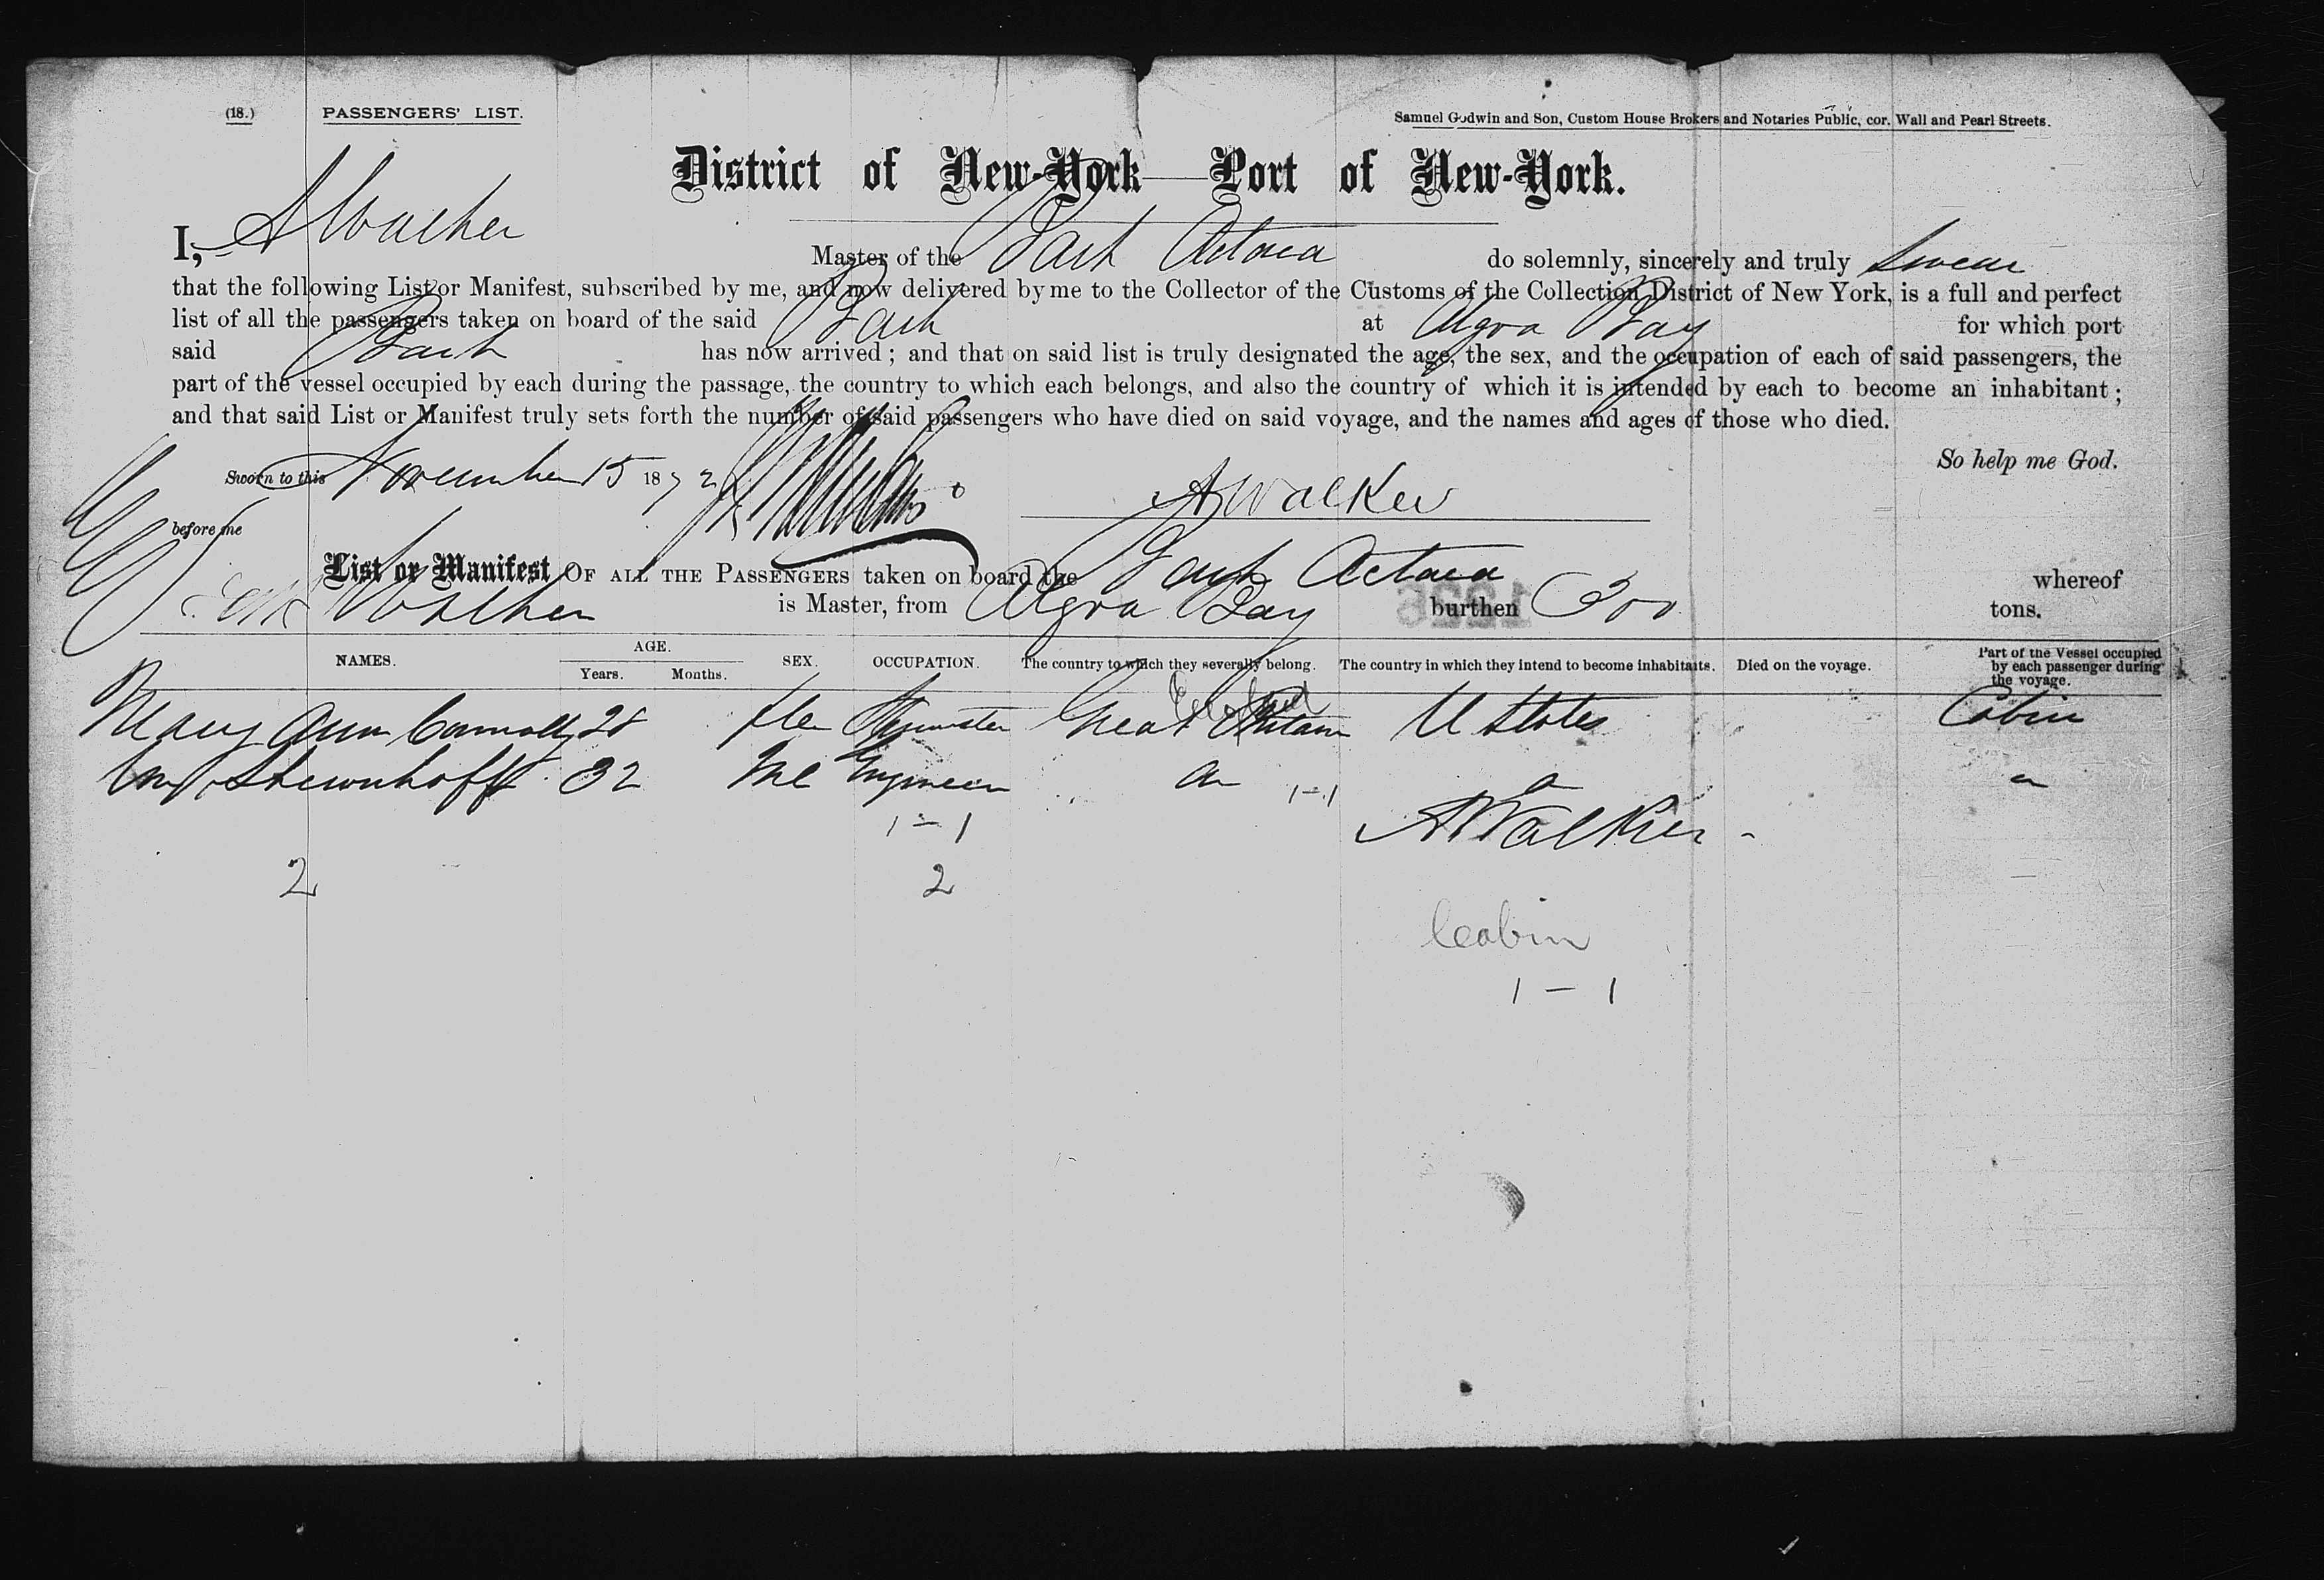 (18.) PASSENGERS' LIST. Samuel Godwin and Son, Custom House Brokers and Notaries Public, cor. Wall and Pearl Streets.
District of New-York—Port of New-York.
I, A Walker Master of the Bark Actaea do solemnly, sincerely and truly swear
that the following List or Manifest, subscribed by me, and now delivered by me to the Collector of the Customs of the Collection District of New York, is a full and perfect
list of all the passengers taken on board of the said Bark at Algoa Bay for which port
said Bark has now arrived; and that on said list is truly designated the age, the sex, and the occupation of each of said passengers, the
part of the vessel occupied by each during the passage, the country to which each belongs, and also the country of which it is intended by each to become an inhabitant;
and that said List or Manifest truly sets forth the number of said passengers who have died on said voyage, and the names and ages of those who died.
So help me God.
Sworn to this November 15 1872
A Walker
before me
List or Manifest OF ALL THE PASSENGERS taken on board the Bark Actaea whereof
Walker is Master, from Algoa Bay burthen 300 tons.
NAMES. AGE. Years. Months. SEX. OCCUPATION. The country to which they severally belong. The country in which they intend to become inhabitants. Died on the voyage. Part of the Vessel occupied by each passenger during the voyage.
Mary Ann Connolly 28 fle Great Britain U States Cabin
32 Me Engineer
1-1
1-1
A Walker
2 2
Cabin
1-1